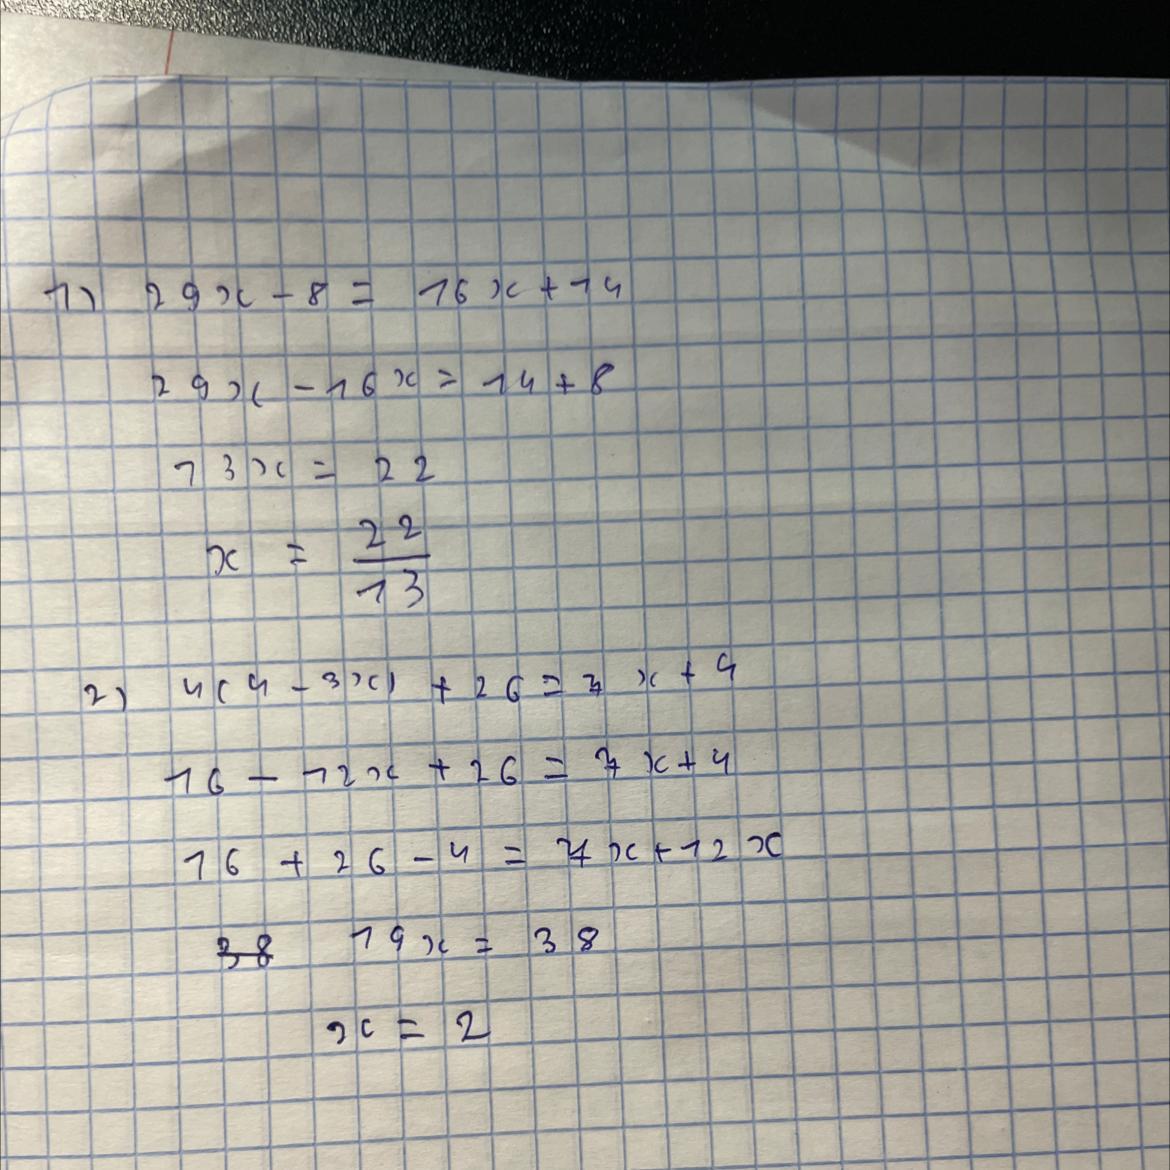 1) 29x - 8 = 16x + 14
29x - 16x = 14 + 8
13x = 22
x = 22/13
2) 4(4 - 3x) + 26 = 7x + 4
16 - 12x + 26 = 7x + 4
16 + 26 - 4 = 7x + 12x
38 19x = 38
x = 2